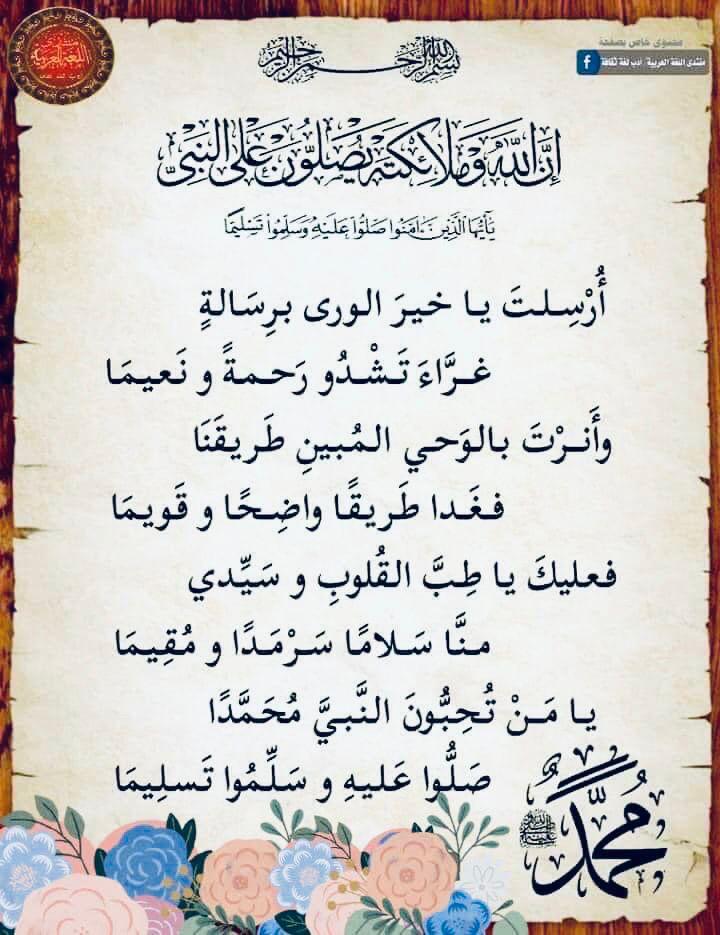 اللغة العربية
محتوى خاص بصفحة
منتدى اللغة العربية/ أدب لغة ثقافة
بسم الله الرحمن الرحيم
إِنَّ اللَّهَ وَمَلَائِكَتَهُ يُصَلُّونَ عَلَى النَّبِيِّ
يَا أَيُّهَا الَّذِينَ ءَامَنُوا صَلُّوا عَلَيْهِ وَسَلِّمُوا تَسْلِيمًا
أُرْسِلتَ يا خيرَ الورى برِسَالةٍ
غرَّاءَ تَشْدُو رَحمةً و نَعيمَا
وأَنرْتَ بالوَحي المُبينِ طَريقَنَا
فغَدا طَريقًا واضِحًا و قَويمَا
فعليكَ يا طِبَّ القُلوبِ و سَيِّدي
منَّا سَلامًا سَرْمَدًا و مُقِيمَا
يا مَنْ تُحِبُّونَ النَّبيَّ مُحَمَّدًا
صَلُّوا عَليهِ و سَلِّمُوا تَسلِيمَا
مُحَمَّد
صلى الله عليه وسلم